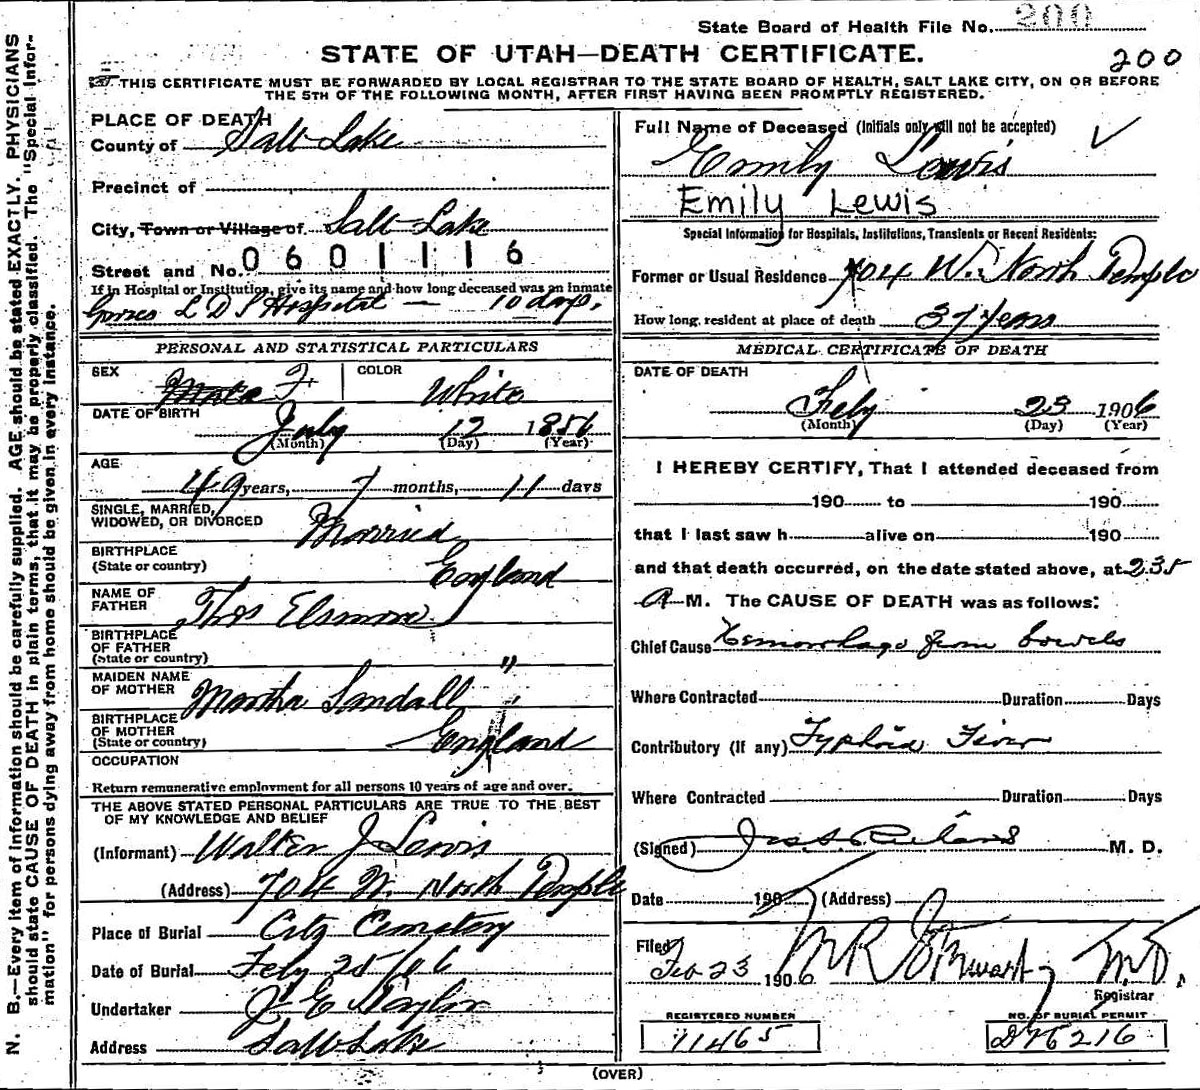 N. B.—Every item of information should be carefully supplied. AGE should be stated EXACTLY. PHYSICIANS
should state CAUSE OF DEATH in plain terms, that it may be properly classified. The "Special Infor-
mation" for persons dying away from home should be given in every instance.
State Board of Health File No. 200
STATE OF UTAH—DEATH CERTIFICATE.
200
THIS CERTIFICATE MUST BE FORWARDED BY LOCAL REGISTRAR TO THE STATE BOARD OF HEALTH, SALT LAKE CITY, ON OR BEFORE
THE 5TH OF THE FOLLOWING MONTH, AFTER FIRST HAVING BEEN PROMPTLY REGISTERED.
PLACE OF DEATH
County of Salt Lake
Precinct of
City, Town or Village of. Salt Lake
Street and No. 0601116
If in Hospital or Institution, give its name and how long deceased was an inmate
L D S Hospital — 10 days.
PERSONAL AND STATISTICAL PARTICULARS
SEX Male F
COLOR White
DATE OF BIRTH
July 12 1856
(Month) (Day) (Year)
AGE
49 years, 7 months, 11 days
SINGLE, MARRIED,
WIDOWED, OR DIVORCED Married
BIRTHPLACE
(State or country) England
NAME OF
FATHER Thos Elsmore
BIRTHPLACE
OF FATHER
(State or country) "
MAIDEN NAME
OF MOTHER Martha Sandall
BIRTHPLACE
OF MOTHER
(State or country) England
OCCUPATION
Return remunerative employment for all persons 10 years of age and over.
THE ABOVE STATED PERSONAL PARTICULARS ARE TRUE TO THE BEST
OF MY KNOWLEDGE AND BELIEF
(Informant) Walter J Lewis
(Address) 704 W. North Temple
Place of Burial City Cemetery
Date of Burial Feby 25/06
Undertaker J E Taylor
Address Salt Lake
Full Name of Deceased (Initials only will not be accepted)
Emily Lewis
Emily Lewis
Special Information for Hospitals, Institutions, Transients or Recent Residents:
Former or Usual Residence 704 W. North Temple
How long resident at place of death 37 years
MEDICAL CERTIFICATE OF DEATH
DATE OF DEATH
Feby 23 1906
(Month) (Day) (Year)
I HEREBY CERTIFY, That I attended deceased from
190 to 190
that I last saw h alive on 190
and that death occurred, on the date stated above, at 2.35
A M. The CAUSE OF DEATH was as follows:
Chief Cause Hemorrhage from bowels
Where Contracted Duration Days
Contributory (If any) Typhoid Fever
Where Contracted Duration Days
(Signed) M. D.
Date 190 (Address)
Filed
Feb 23 1906 M R Stewart M.D.
Registrar
REGISTERED NUMBER
11465
NO. OF BURIAL PERMIT
D76216
(OVER)